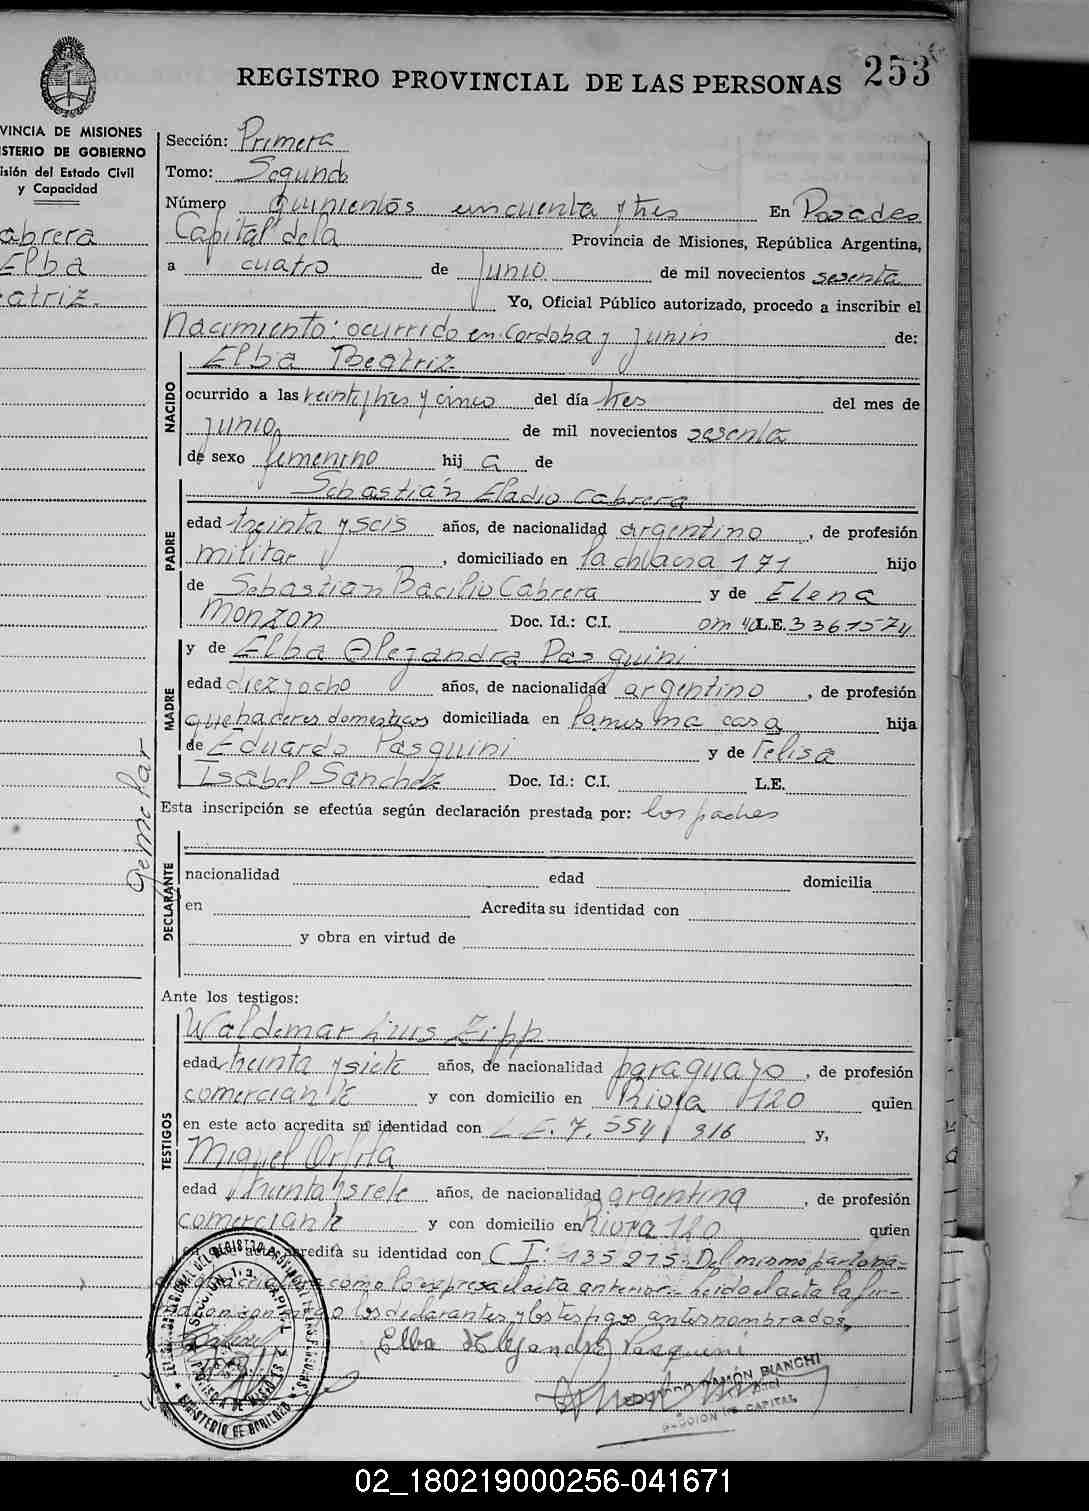 253
REGISTRO PROVINCIAL DE LAS PERSONAS
VINCIA DE MISIONES
ISTERIO DE GOBIERNO
isión del Estado Civil
y Capacidad
abrera
Elba
eatriz.
Sección: Primera
Tomo: Segundo
Número quinientos cincuenta y tres En Posadas
Capital de la Provincia de Misiones, República Argentina,
a cuatro de Junio de mil novecientos sesenta
Yo, Oficial Público autorizado, procedo a inscribir el
Nacimiento: ocurrido en Cordoba y Junín de:
NACIDO
Elba Beatriz
ocurrido a las veintitres y cinco del día tres del mes de
Junio de mil novecientos sesenta
de sexo femenino hij a de
PADRE
Sebastián Eladio Cabrera
edad treinta y seis años, de nacionalidad argentino, de profesión
militar, domiciliado en la chacra 171 hijo
de Sebastian Bacilio Cabrera y de Elena
Monzon Doc. Id.: C.I. DM 40 L.E. 3361574
MADRE
y de Elba Alejandra Pasquini
edad diez y ocho años, de nacionalidad argentino, de profesión
quehaceres domesticos domiciliada en la misma casa hija
de Eduardo Pasquini y de Felisa
Isabel Sanchez Doc. Id.: C.I. L.E.
Gemelar
Esta inscripción se efectúa según declaración prestada por: los padres
DECLARANTE
nacionalidad edad domicilia
en Acredita su identidad con
y obra en virtud de
Ante los testigos:
TESTIGOS
Waldemar Luis Zipp
edad treinta y siete años, de nacionalidad paraguayo, de profesión
comerciante y con domicilio en Rioja 120 quien
en este acto acredita su identidad con L.E. 7.554.916 y,
Miguel
edad treinta y siete años, de nacionalidad argentina, de profesión
comerciante y con domicilio en Rioja 120 quien
acredita su identidad con C I: 135275. Del mismo parto na-
como lo expresa el acta anterior. Leido el acta la fir-
los declarantes y los testigos antes nombrados.
Elba Alejandra Pasquini
RAMÓN BIANCHI
SECCION 1a. CAPITAL
MINISTERIO DE GOBIERNO
02_180219000256-041671